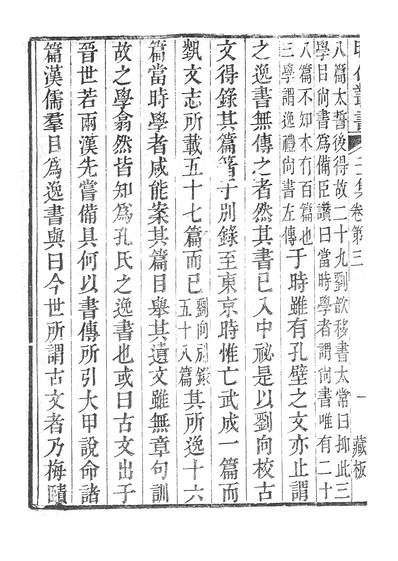 昭代叢書 卷第三 一 藏板
八篇太誓後得故二十九劉歆移書太常曰抑此三
學曰尚書爲備臣瓚曰當時學者謂尚書唯有二十
八篇不知本有百篇也
三學謂逸禮尚書左傳
于時雖有孔壁之文亦止謂
之逸書無傳之者然其書已入中祕是以劉向校古
文得錄其篇著于別錄至東京時惟亡武成一篇而
蓺文志所載五十七篇而已劉向別錄五十八篇其所逸十六
篇當時學者咸能案其篇目舉其遺文雖無章句訓
故之學翕然皆知爲孔氏之逸書也或曰古文出于
晉世若兩漢先嘗備具何以書傳所引大甲說命諸
篇漢儒羣目爲逸書與曰今世所謂古文者乃梅賾